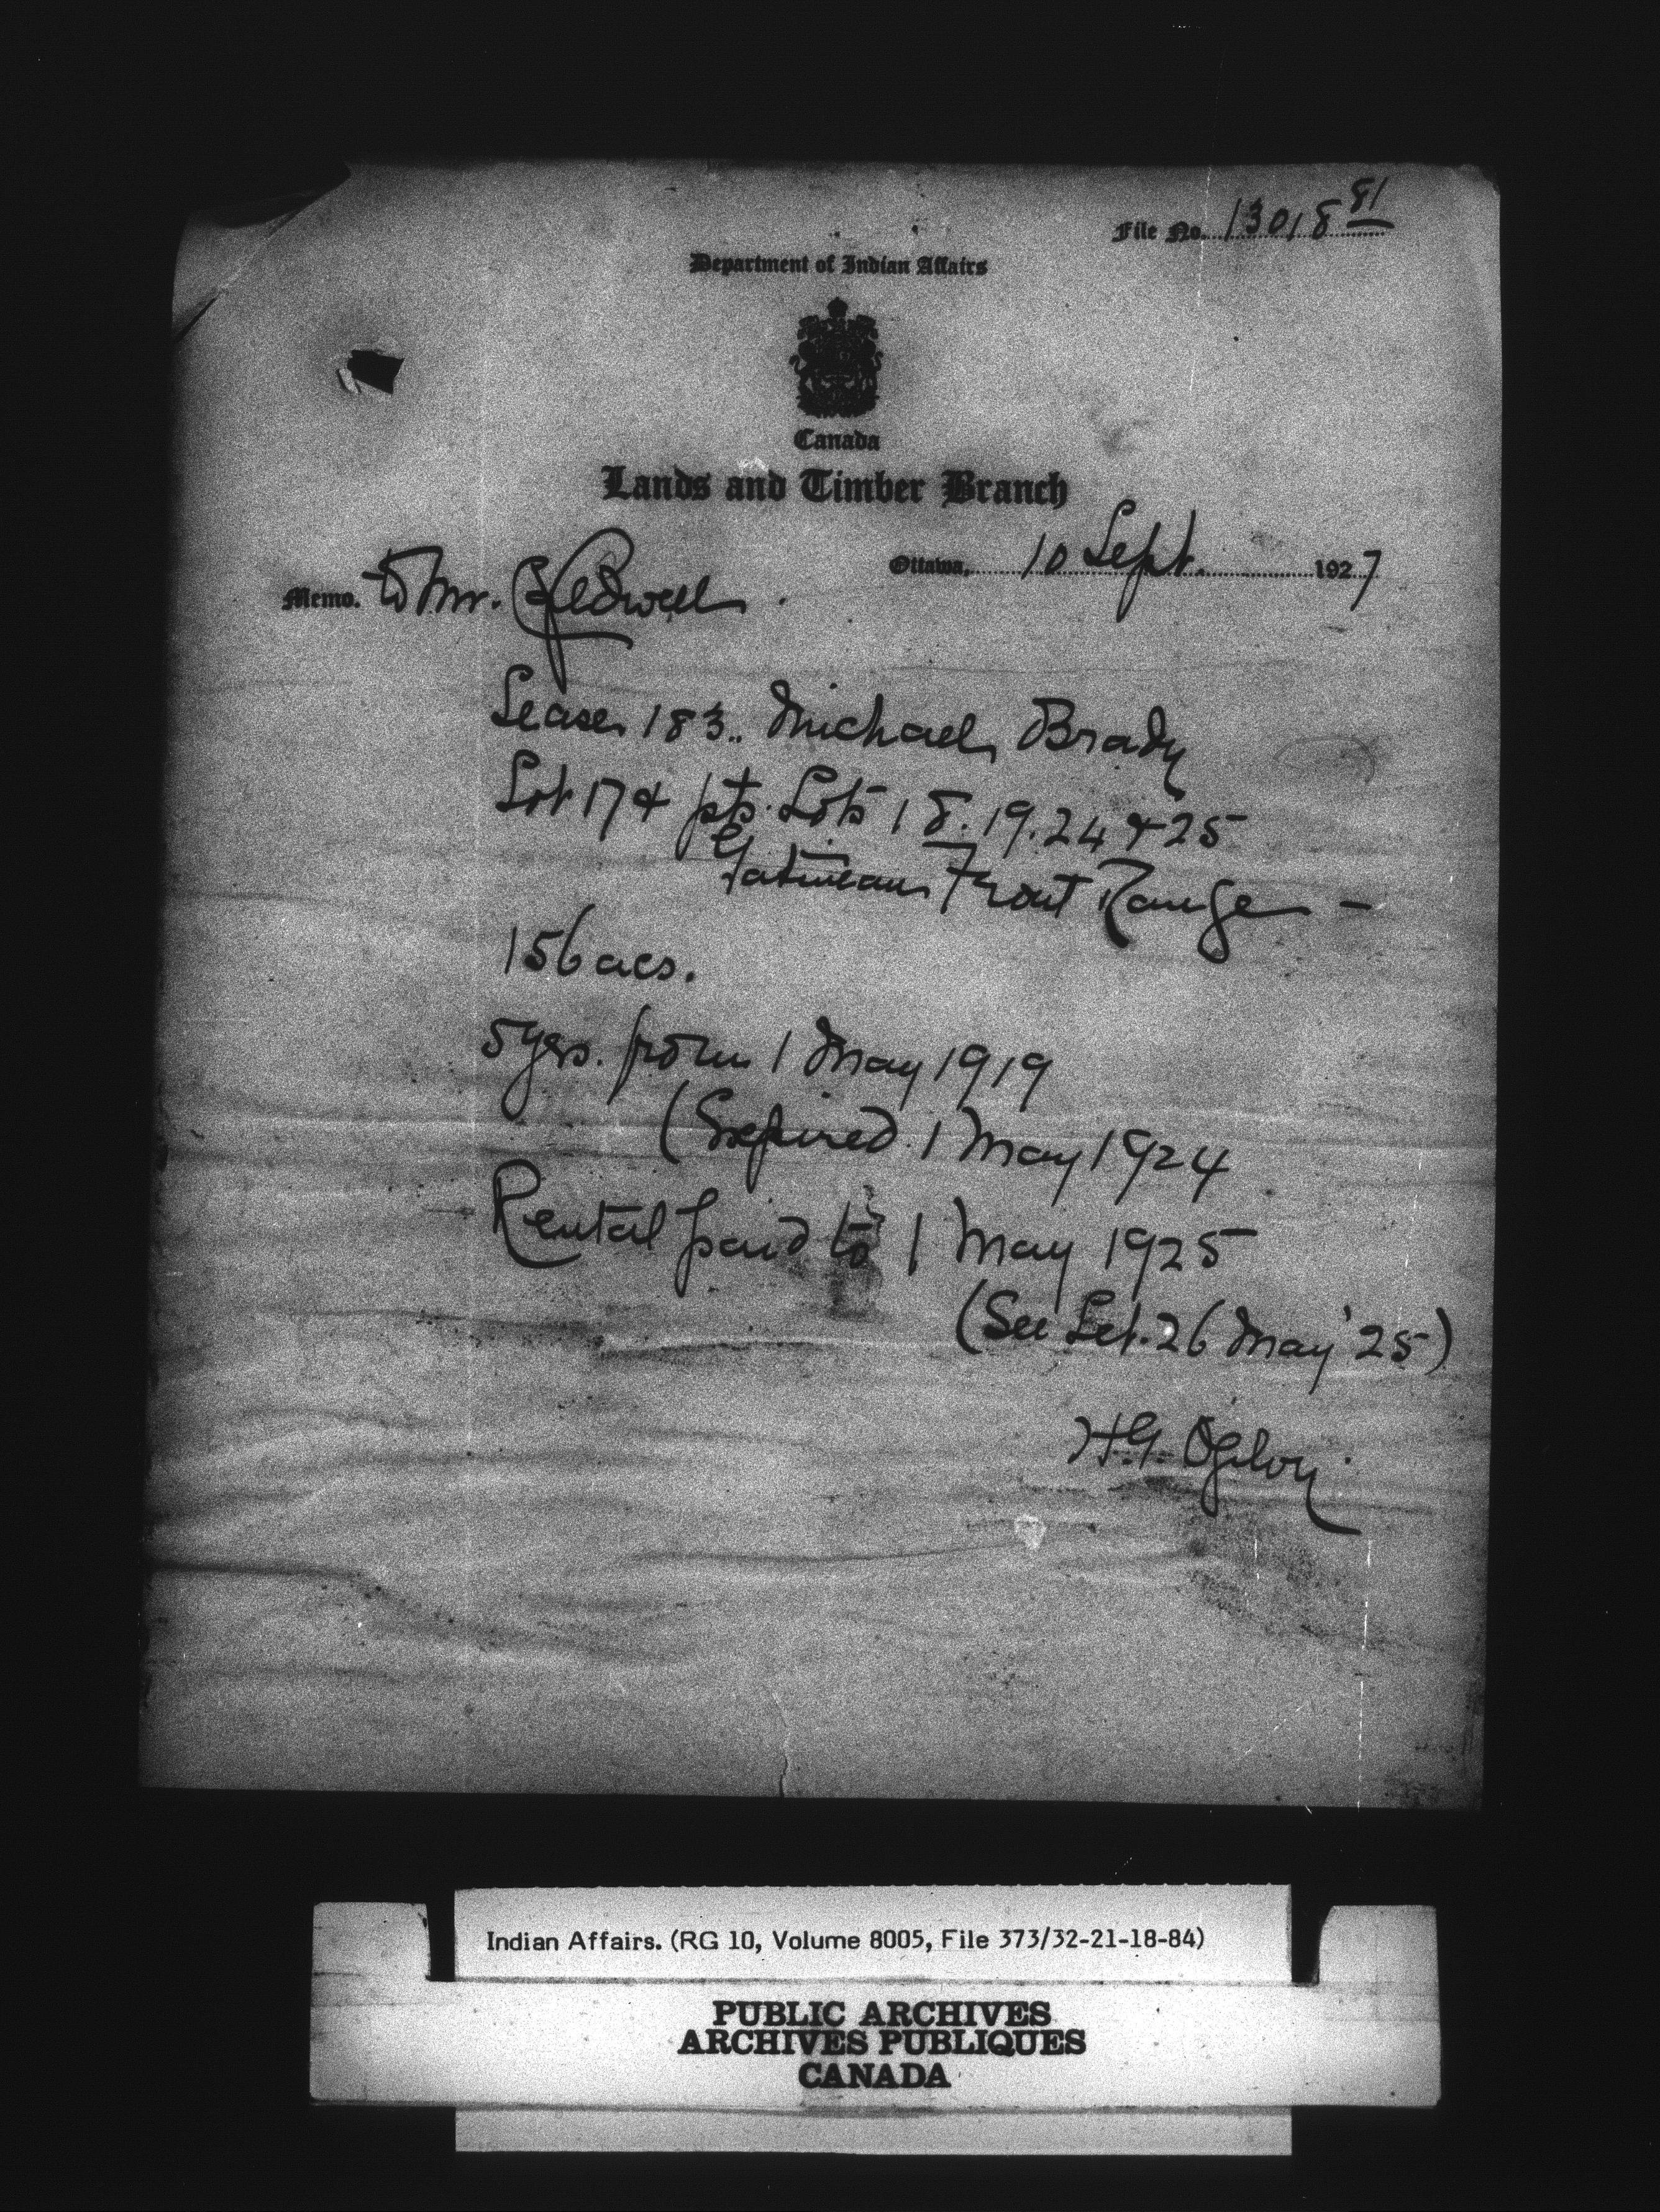 File No. 13018 81
Department of Indian Affairs
Canada
Lands and Timber Branch
Ottawa, 10 Sept. 1927
Memo. to Mr. Caldwell.
Lease 183.. Michael Brady
Lot 17 & pts. Lots 18. 19. 24 & 25
Gatineau Front Range -
156 acs.
5 yrs. from 1 May 1919
(Expired 1 May 1924
Rental paid to 1 May 1925
(See Let. 26 May '25)
H.G. Ogilvy.
Indian Affairs. (RG 10, Volume 8005, File 373/32-21-18-84)
PUBLIC ARCHIVES
ARCHIVES PUBLIQUES
CANADA